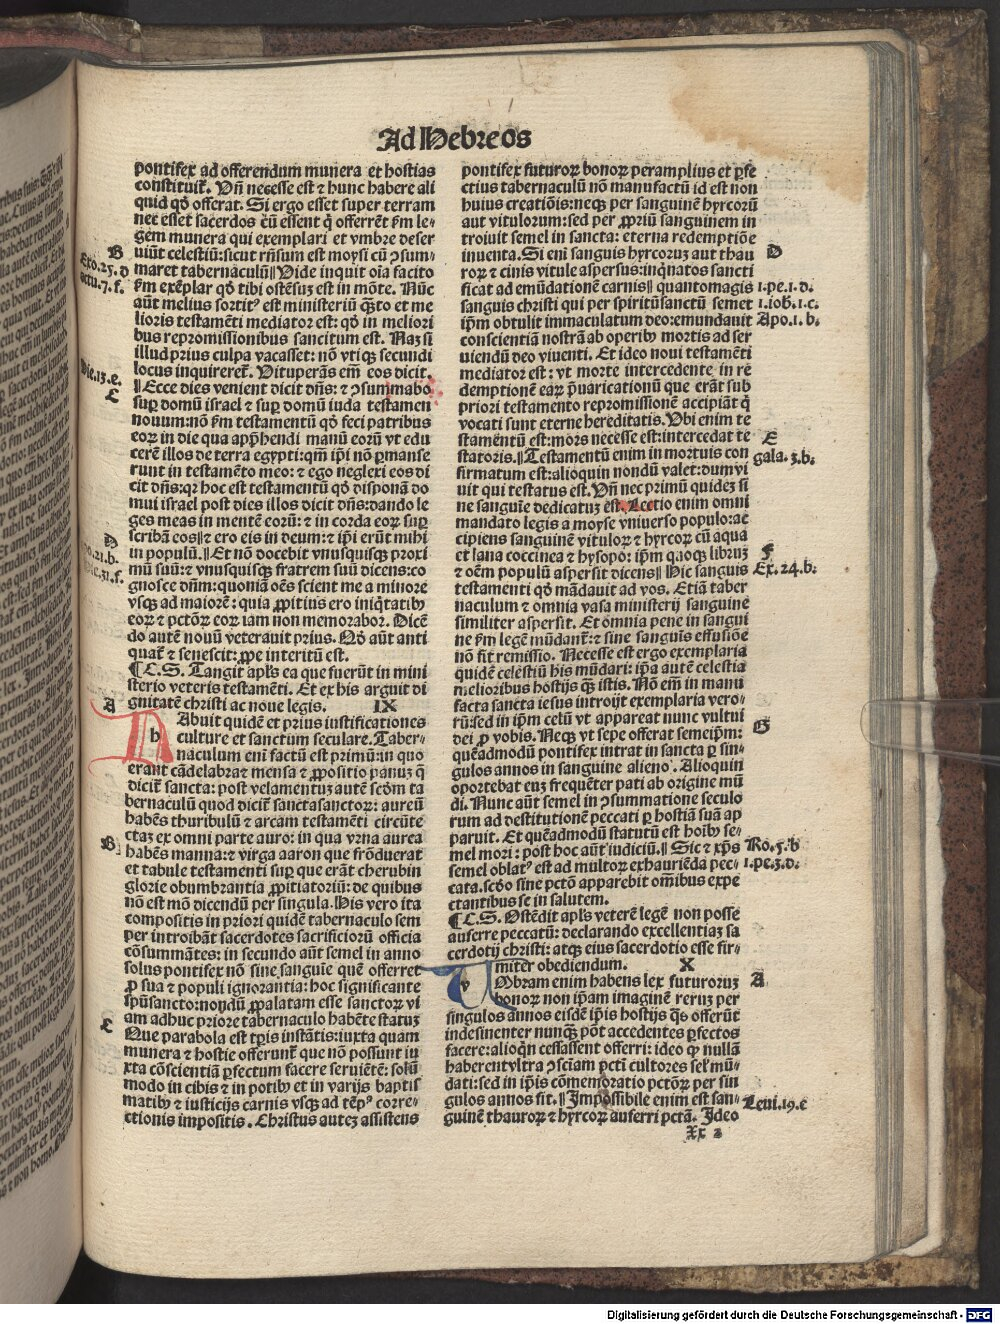 Ad Hebreos
pontifex ad offerendum munera et hostias
constituit̃. Vñ necesse est ⁊ hunc habere ali
quid qđ offerat. Si ergo esset super terram
nec esset sacerdos cū essent q̃ offerrēt ẜm le-
gem munera qui exemplari et vmbre deser
uiūt celestiū: sicut rñsum est moysi cū ꝯsum-
maret tabernaculū Vide inquit oīa facito
ẜm exēplar qđ tibi ostēsuꝫ est in mōte. Nūc
aūt melius sortitꝰ est ministeriū q̄ꝫto et me
lioris testamēti mediator est: qđ in meliori
bus repromissionibus sancitum est. Naꝫ si
illud prius culpa vacasset: nō vtiqꝫ secundi
locus inquireret̃. Vituperās em̄ eos dicit.
Ecce dies venient dicit dñs: ⁊ ꝯsummabo
suꝑ domū israel ⁊ suꝑ domū iuda testamen
nouum: nō ẜm testamentū qđ feci patribus
eoꝝ in die qua apṗhendi manū eorū vt edu
cerē illos de terra egypti: qm̄ ip̄i nō ꝑmanse
runt in testamēto meo: ⁊ ego neglexi eos di
cit dñs: qꝛ hoc est testamentū qđ disponā do
mui israel post dies illos dicit dñs: dando le
ges meas in mentē eorū: ⁊ in corda eoꝝ suꝑ
scribā eos ⁊ ero eis in deum: ⁊ ip̄i erūt mihi
in populū. Et nō docebit vnusquisqꝫ proxi
mū suū: ⁊ vnusquisqꝫ fratrem suū dicens: co
gnosce dñm: quoniā oēs scient me a minore
vsqꝫ ad maiorē: quia ꝓpitius ero iniq̇tatibꝰ
eoꝝ ⁊ pctōꝝ eoꝝ iam non memorabor. Dicē
do autē nouū veterauit prius. Qđ aūt anti
quat̃ ⁊ senescit: ꝓpe interitū est.
¶ C.S. Tangit apl̃s ea que fuerūt in mini
sterio veteris testamēti. Et ex his arguit di
gnitatē christi ac noue legis. IX
HAbuit quidē et prius iustificationes
culture et sanctum seculare. Taber-
naculum eni factū est primū: in quo
erant cādelabra⁊ mensa ⁊ ꝓpositio panuꝫ q̃
dicit̃ sancta: post velamentuꝫ autē scḋm ta
bernaculū quod dicit̃ sanctasanctoꝝ: aureū
habēs thuribulū ⁊ arcam testamēti circūte
ctaꝫ ex omni parte auro: in qua vrna aurea
habēs manna: ⁊ virga aaron que frōduerat
et tabule testamenti suꝑ que erāt cherubin
glorie obumbrantia ꝓpitiatoriū: de quibus
nō est mō dicendū per singula. His vero ita
compositis in priori quidē tabernaculo sem
per introibāt sacerdotes sacrificiorū officia
cōsummātes: in secundo aūt semel in anno
solus pontifex nō sine sanguīe quē offerret
ꝓ sua ⁊ populi ignorantia: hoc significante
spūsancto: nondū ꝓpalatam esse sanctoꝝ vi
am adhuc priore tabernaculo habēte statuꝫ
Que parabola est tꝑis instātis: iuxta quam
munera ⁊ hostie offerunt̃ que nō possunt iu
xta cōscientiā ꝑfectum facere seruiētē: solū
modo in cibis ⁊ in potibꝰ et in varijs baptis
matibꝰ ⁊ iusticijs carnis vsqꝫ ad tēpꝰ corre-
ctionis impositis. Christus auteꝫ assistens
B
Exo.25.d
actu.7.f.
Hie.13.e.
C
D
A
B
C
pontifex futuroꝝ bonoꝝ per amplius et ꝑfe
ctius tabernaculū nō manufactū id est non
huius creatiōis: neqꝫ per sanguinē hyrcorū
aut vitulorum: sed per ꝓpriū sanguinem in
troiuit semel in sancta: eterna redemptiōe
inuenta. Si eni sanguis hyrcoruꝫ aut thau
roꝝ ⁊ cinis vitule aspersus: inq̇natos sancti
ficat ad emūdationē carnis quantomagis
sanguis christi qui per spiritūsanctū semet
ip̄m obtulit immaculatum deo: emundauit
conscientiā nostrā ab operibꝰ mortis ad ser
uiendū deo viuenti. Et ideo noui testamēti
mediator est: vt morte intercedente in re
demptionē eaꝝ ꝑuaricationū que erāt sub
priori testamento repromissionē accipiāt q̃
vocati sunt eterne hereditatis. Vbi enim te
stamentū est: mors necesse est: intercedat te
statoris. Testamentū enim in mortuis con
firmatum est: alioquin nondū valet: dum vi
uit qui testatus est. Vñ nec primū quideꝫ si
ne sanguīe dedicatuꝫ est. Lectio enim omni
mandato legis a moyse vniuerso populo: ac
cipiens sanguinē vituloꝝ ⁊ hyrcoꝝ cū aqua
et lana coccinea ⁊ hysopo: ip̄m quoqꝫ libruꝫ
⁊ oēm populū aspersit dicens Hic sanguis
testamenti qđ mādauit ad vos. Etiā taber
naculum ⁊ omnia vasa ministerij sanguine
similiter aspersit. Et omnia pene in sangui
ne ẜm legē mūdant̃: ⁊ sine sanguis effusiōe
nō fit remissio. Necesse est ergo exemplaria
quidē celestiū his mūdari: ip̄a autē celestia
melioribus hostijs q̄ꝫ istis. Nō em̄ in manu
facta sancta iesus introijt exemplaria vero-
rū: sed in ip̄m celū vt appareat nunc vultui
dei ꝓ vobis. Neqꝫ vt sepe offerat semeip̄m:
quēadmodū pontifex intrat in sancta ꝑ sin-
gulos annos in sanguine alieno. Alioquin
oportebat euꝫ frequēter pati ab origine mū
di. Nunc aūt semel in ꝯsummatione seculo
rum ad destitutionē peccati ꝑ hostiā suā ap
paruit. Et quēadmodū statutū est hoībꝰ se-
mel mori: post hoc aūt iudiciū. Sic ⁊ xp̄s
semel oblatꝰ est ad multoꝝ exhauriēda pec-
cata. scḋo sine pctō apparebit om̄ibus expe
ctantibus se in salutem.
¶ C.S. Ostēdit apl̃s veterē legē non posse
auferre peccatū: declarando excellentiaꝫ sa
cerdotij christi: atqꝫ eius sacerdotio esse fir-
miter obediendum. X
VMbram enim habens lex futuroruꝫ
bonoꝝ non ip̄am imaginē reruꝫ per
singulos annos eisdē ip̄is hostijs q̄s offerūt
indesinenter nunqꝫ̄ pōt accedentes ꝑfectos
facere: alioq̇n cessassent offerri: ideo ꝙ nullā
haberent vltra ꝯsciam pcti cultores sel̃ mū-
dati: sed in ip̄is cōmemoratio pctōꝝ per sin
gulos annos fit. Impossibile enim est san-
guinē thauroꝝ ⁊ hyrcoꝝ auferri pctā. Ideo
D
1.pe.1.d.
1.iob.1.c.
Apo.1.b.
E
gala.3.b.
F
Ex.24.b.
G
Ro.5.b
1.pe.3.d.
A
Leui.19.c
Xx 2
Digitalisierung gefördert durch die Deutsche Forschungsgemeinschaft - DFG